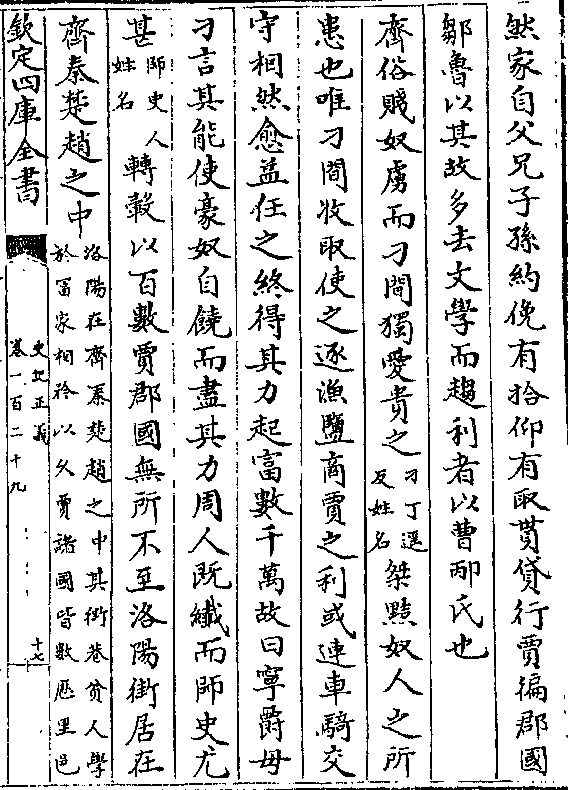 然家自父兄子孫約俛有拾仰有取貰貸行賈徧郡國
鄒魯以其故多去文學而趨利者以曹邴氏也
齊俗賤奴虜而刁閒獨愛貴之
刁丁遥
反姓名
桀黠奴人之所
患也唯刁閒收取使之逐漁鹽商賈之利或連車騎交
守相然愈益任之終得其力起富數千萬故曰寧爵毋
刁言其能使豪奴自饒而盡其力周人既纎而師史尤
甚
師史人
姓名
轉轂以百數賈郡國無所不至洛陽街居在
齊秦楚趙之中
洛陽在齊秦楚趙之中其街巷貧人學
於富家相矜以久賈諸國皆數歴里邑
欽定四庫全書
史記正義
卷一百二十九
十七